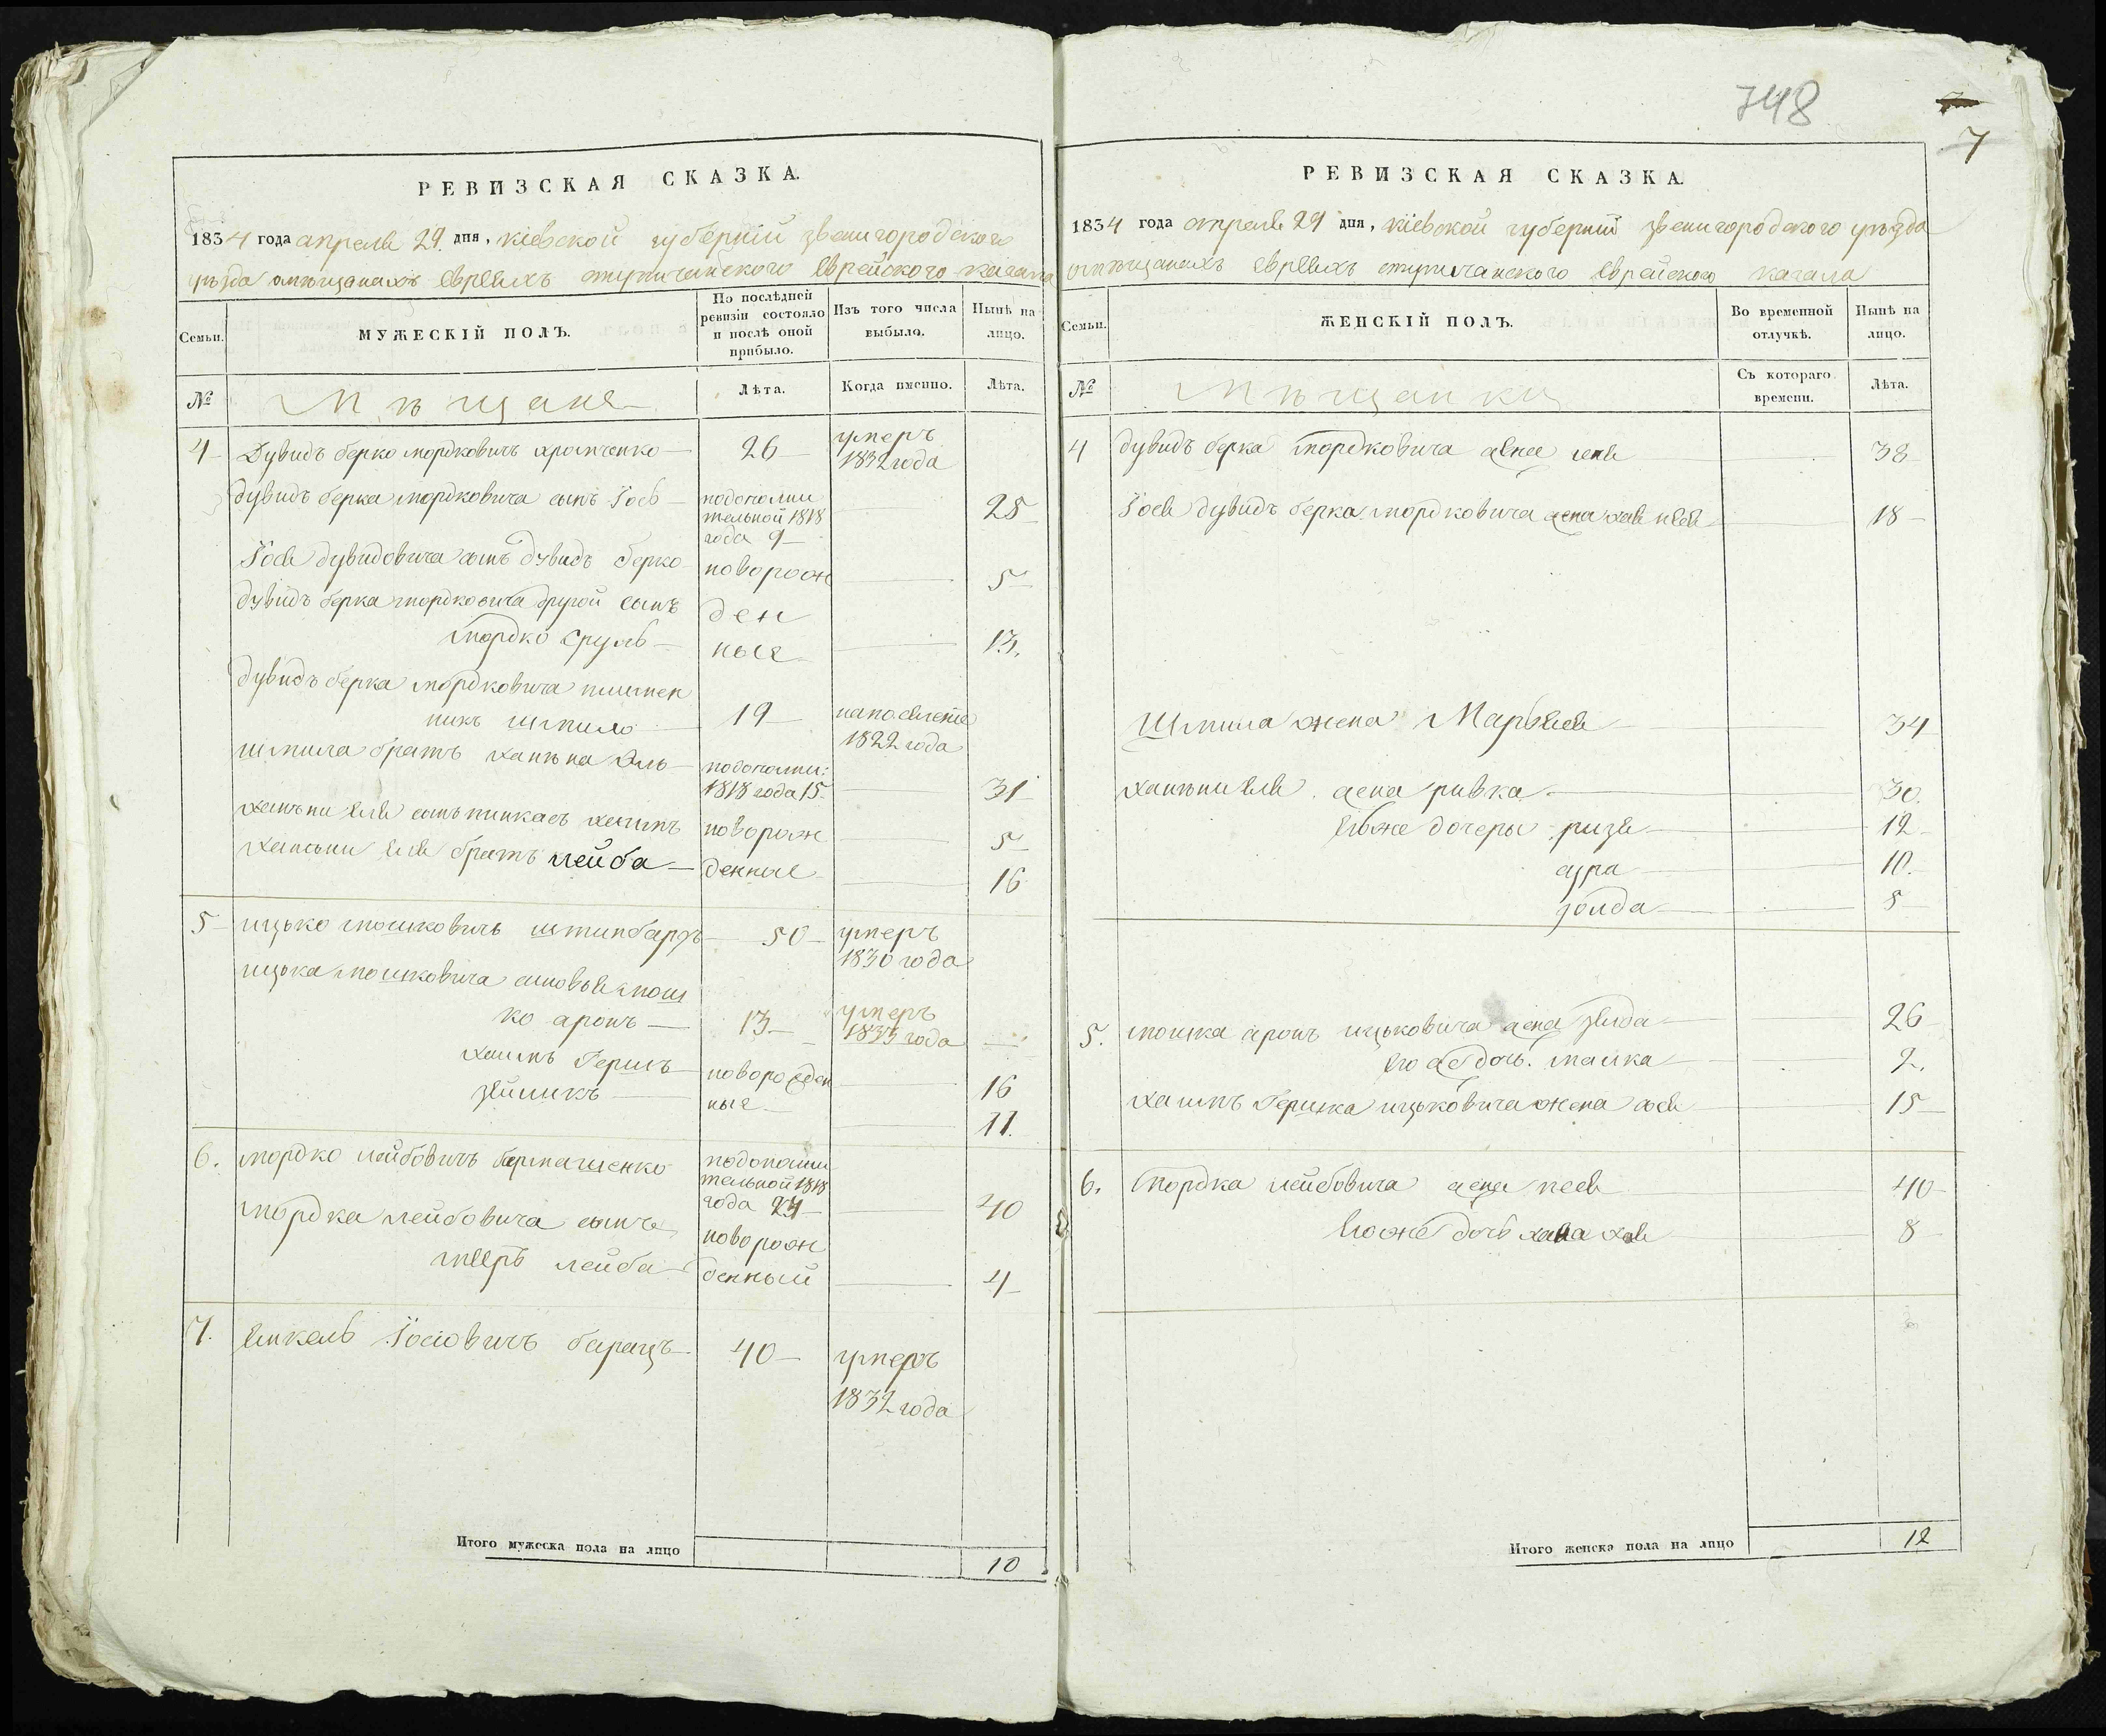 748
7
РЕВИЗСКАЯ СКАЗКА.
1834 года апреля 29 дня, кіевской губерніи звенигородского
уѣзда омѣщанахъ евреяхъ еврейского кагала
Семьи.
МУЖЕСКІЙ ПОЛЪ.
По послѣдней
ревизіи состояло
и послѣ оной
прибыло.
Изъ того числа
выбыло.
Нынѣ на
лицо.
№
Мѣщане
Лѣта.
Когда именно.
Лѣта.
4 Дувидъ берко мордковичъ 26 умеръ
1832 года
дувидъ берка мордковича сынъ Іось подополни
тельной 1818
года 9 25
Іося дувидовича сынъ дувидъ берко новорож 5
дувидъ берка мордковича другой сынъ ден
мордко сруль ные 13.
дувидъ берка мордковича племен
никъ шмило 19
1822 года
шмила братъ подополни:
1818 года 15 31
сынъ пинкасъ хаимъ новорож 5
братъ лейба денные 16
5 ицько мошковичъ 50 умеръ
1830 года
ицька мошковича сыновья мош
ко аронъ 13 умеръ
1833 года
хаимъ Гершъ новорожден 16
зейликъ ные 11.
6. мордко лейбовичъ подополни
тельной 1818
года 24 40
мордка лейбовича сынъ новорож
мееръ лейба денный 4
7. Іосіовичъ 40 умеръ
1832 года
Итого мужеска пола на лицо 10
РЕВИЗСКАЯ СКАЗКА.
1834 года апреля 29 дня, кіевской губерніи звенигородского уѣзда
омѣщанахъ евреяхъ еврейского кагала
Семьи.
ЖЕНСКІЙ ПОЛЪ.
Во временной
отлучкѣ.
Нынѣ на
лицо.
№
Мѣщанки
Съ котораго
времени.
Лѣта.
4 дувидъ берка мордковича жена 38
Іося дувидъ берка мордковича жена 18
Шмила жена 34
жена ривка 30.
егоже дочеры ризя 12
10.
золда 5
5. мошка аронъ ицьковича жена 26
егоже дочь. 2.
хаимъ Гершка ицьковича жена 15
6. мордка лейбовича жена песя 40
егоже дочь 8
Итого женска пола на лицо 12